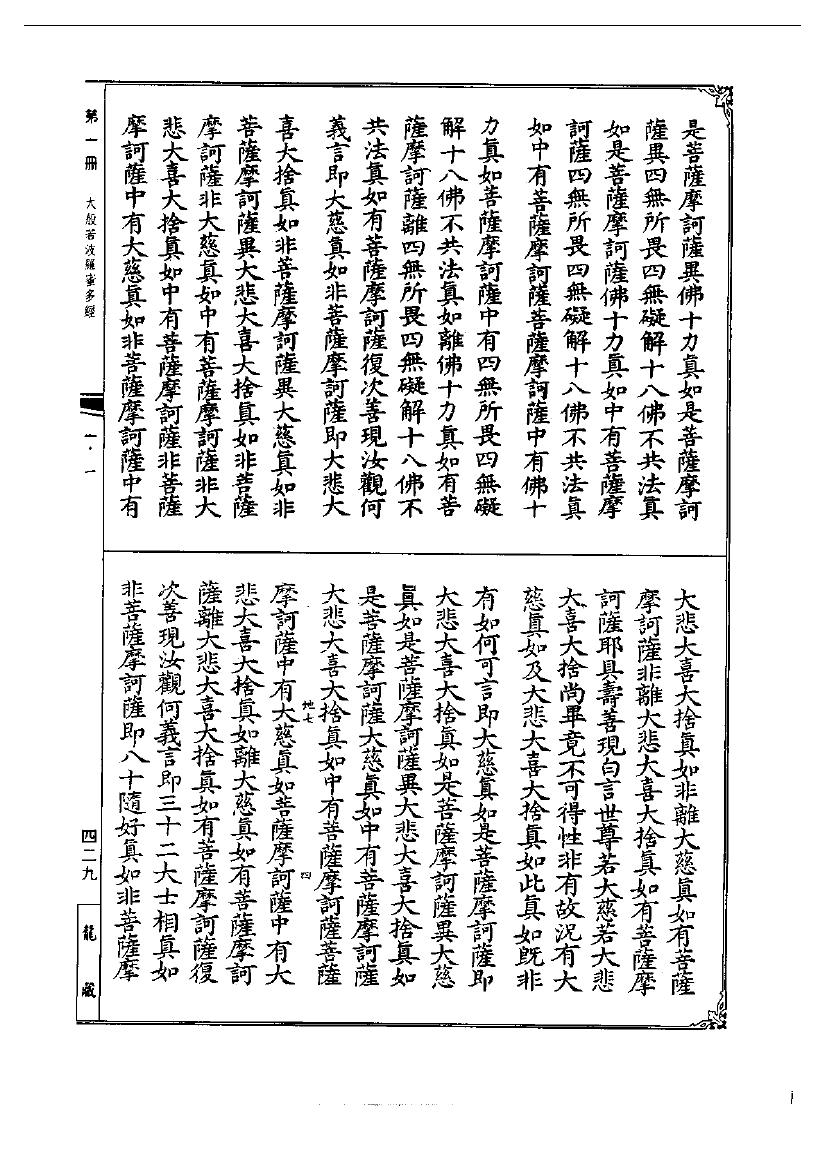 是菩薩摩訶薩異佛十力真如是菩薩摩訶
薩異四無所畏四無礙解十八佛不共法真
如是菩薩摩訶薩佛十力真如中有菩薩摩
訶薩四無所畏四無礙解十八佛不共法真
如中有菩薩摩訶薩菩薩摩訶薩中有佛十
力真如菩薩摩訶薩中有四無所畏四無礙
解十八佛不共法真如離佛十力真如有菩
薩摩訶薩離四無所畏四無礙解十八佛不
共法真如有菩薩摩訶薩復次善現汝觀何
義言即大慈真如非菩薩摩訶薩即大悲大
喜大捨真如非菩薩摩訶薩異大慈真如非
菩薩摩訶薩異大悲大喜大捨真如非菩薩
摩訶薩非大慈真如中有菩薩摩訶薩非大
悲大喜大捨真如中有菩薩摩訶薩非菩薩
摩訶薩中有大慈真如非菩薩摩訶薩中有
大悲大喜大捨真如非離大慈真如有菩薩
摩訶薩非離大悲大喜大捨真如有菩薩摩
訶薩耶具壽善現白言世尊若大慈若大悲
大喜大捨尚畢竟不可得性非有故況有大
慈真如及大悲大喜大捨真如此真如既非
有如何可言即大慈真如是菩薩摩訶薩即
大悲大喜大捨真如是菩薩摩訶薩異大慈
真如是菩薩摩訶薩異大悲大喜大捨真如
是菩薩摩訶薩大慈真如中有菩薩摩訶薩
大悲大喜大捨真如中有菩薩摩訶薩菩薩
地七
四
摩訶薩中有大慈真如菩薩摩訶薩中有大
悲大喜大捨真如離大慈真如有菩薩摩訶
薩離大悲大喜大捨真如有菩薩摩訶薩復
次善現汝觀何義言即三十二大士相真如
非菩薩摩訶薩即八十隨好真如非菩薩摩
第一冊 大般若波羅蜜多經
一·一
四二九
龍藏